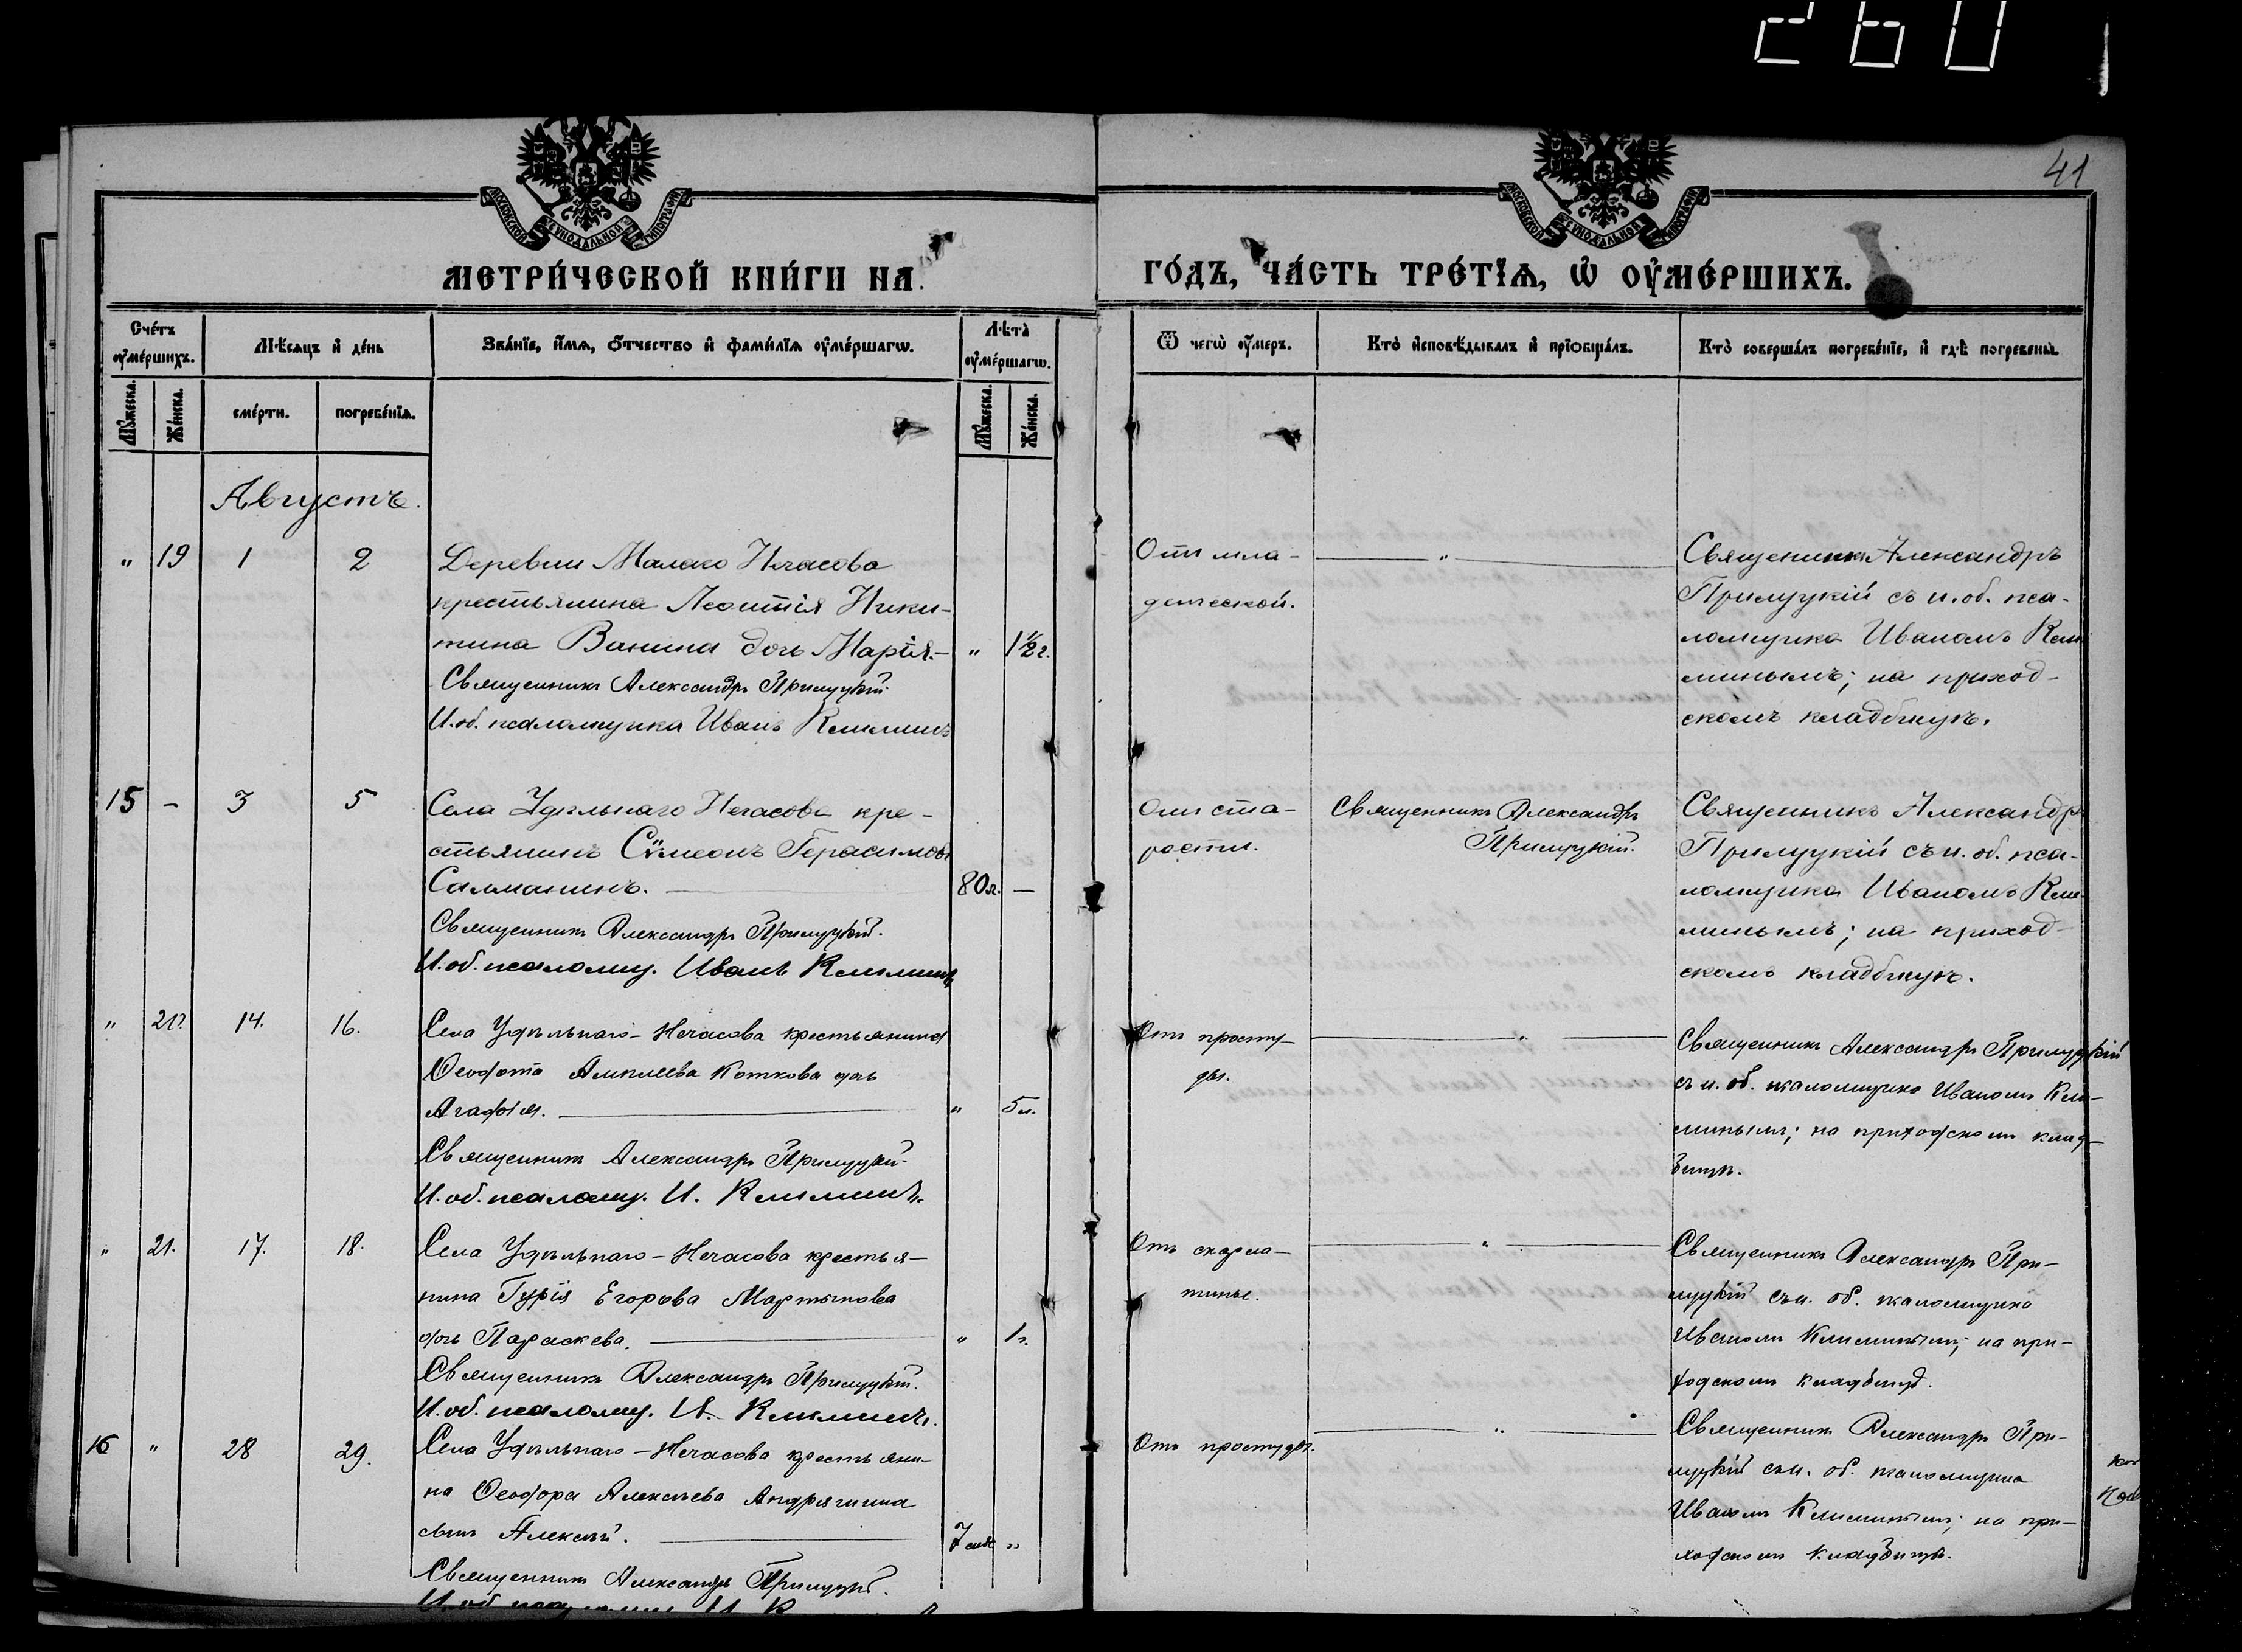 260
41
МОСКОВСКОЙ СѴНОДАЛЬНОЙ ТИПОГРАФІИ
МОСКОВСКОЙ СѴНОДАЛЬНОЙ ТИПОГРАФІИ
МЕТРИ́ЧЕСКОЙ КНИ́ГИ НА
ГО́ДЪ, ЧА́СТЬ ТРЕ́ТЇѦ, Ѡ҆ ОУ҆МЕ́РШИХЪ.
Сче́тъ оу҆ме́ршихъ.
Мѣ́сяцъ и҆ де́нь
Зва́нїе, и҆́мѧ, ѻ҆́тчество и҆ фами́лїѧ оу҆ме́ршагѡ.
Лѣ̀та оу҆ме́ршагѡ.
Ѿ чегѡ̀ оу҆́меръ.
Кто̀ и҆сповѣ́дывалъ и҆ прїѡбща́лъ.
Кто̀ соверша́лъ погребе́нїе, и҆ гдѣ̀ погребены̀.
Мꙋ́жеска.
Же́нска.
сме́рти.
погребе́нїѧ.
Мꙋ́жеска.
Же́нска.
Августъ.
" 19 1 2
Деревни Малаго Нечасова
крестьянина Леонтія Ники-
тина Ванина дочь Марія.- " 1½ г.
Священникъ Александръ Прилуцкій.
И. об. псаломщика Иванъ Климинъ
Отъ мла-
денческой.
"
Священникъ Александръ
Прилуцкій съ и. об. пса-
ломщика Иваномъ Кли
минымъ; на приход-
скомъ кладбищѣ.
15 - 3 5
Села Удѣльнаго Нечасова кре-
стьянинъ Сѵмеонъ Герасимовъ
Салманинъ. 80 л. -
Священникъ Александръ Прилуцкій.
И. об. псаломщ. Иванъ Климинъ
Отъ ста-
рости.
Священникъ Александръ
Прилуцкій.
Священникъ Александръ
Прилуцкій съ и. об. пса-
ломщика Иваномъ Кли-
минымъ; на приход-
скомъ кладбищѣ.
" 20. 14. 16.
Села Удѣльнаго-Нечасова крестьянина
Ѳеодота Коткова дочь
Агафія. " 5 л.
Священникъ Александръ Прилуцкій.
И. об. псаломщ. И. Климинъ.
Отъ просту-
ды.
"
Священникъ Александръ Прилуцкій
съ и. об. псаломщика Иваномъ Кли-
минымъ; на приходскомъ клад-
бищѣ.
" 21. 17. 18.
Села Удѣльнаго-Нечасова крестья-
нина Гурія Егорова Мартынова
дочь Параскева. " 1 г.
Священникъ Александръ Прилуцкій.
И. об. псаломщ. И. Климинъ.
Отъ скарла-
тины.
"
Священникъ Александръ При-
луцкій съ и. об. псаломщика
Иваномъ Климинымъ; на при-
ходскомъ кладбищѣ.
16 " 28 29.
Села Удѣльнаго-Нечасова крестьяни-
на Ѳеодора Алексѣева Андрягина
сынъ Алексѣй. 7 "
Священникъ Александръ Прилуцкій.
И. об.
Отъ простуды.
"
Священникъ Александръ При-
луцкій съ и. об. псаломщика
Иваномъ Климинымъ; на при-
ходскомъ кладбищѣ.